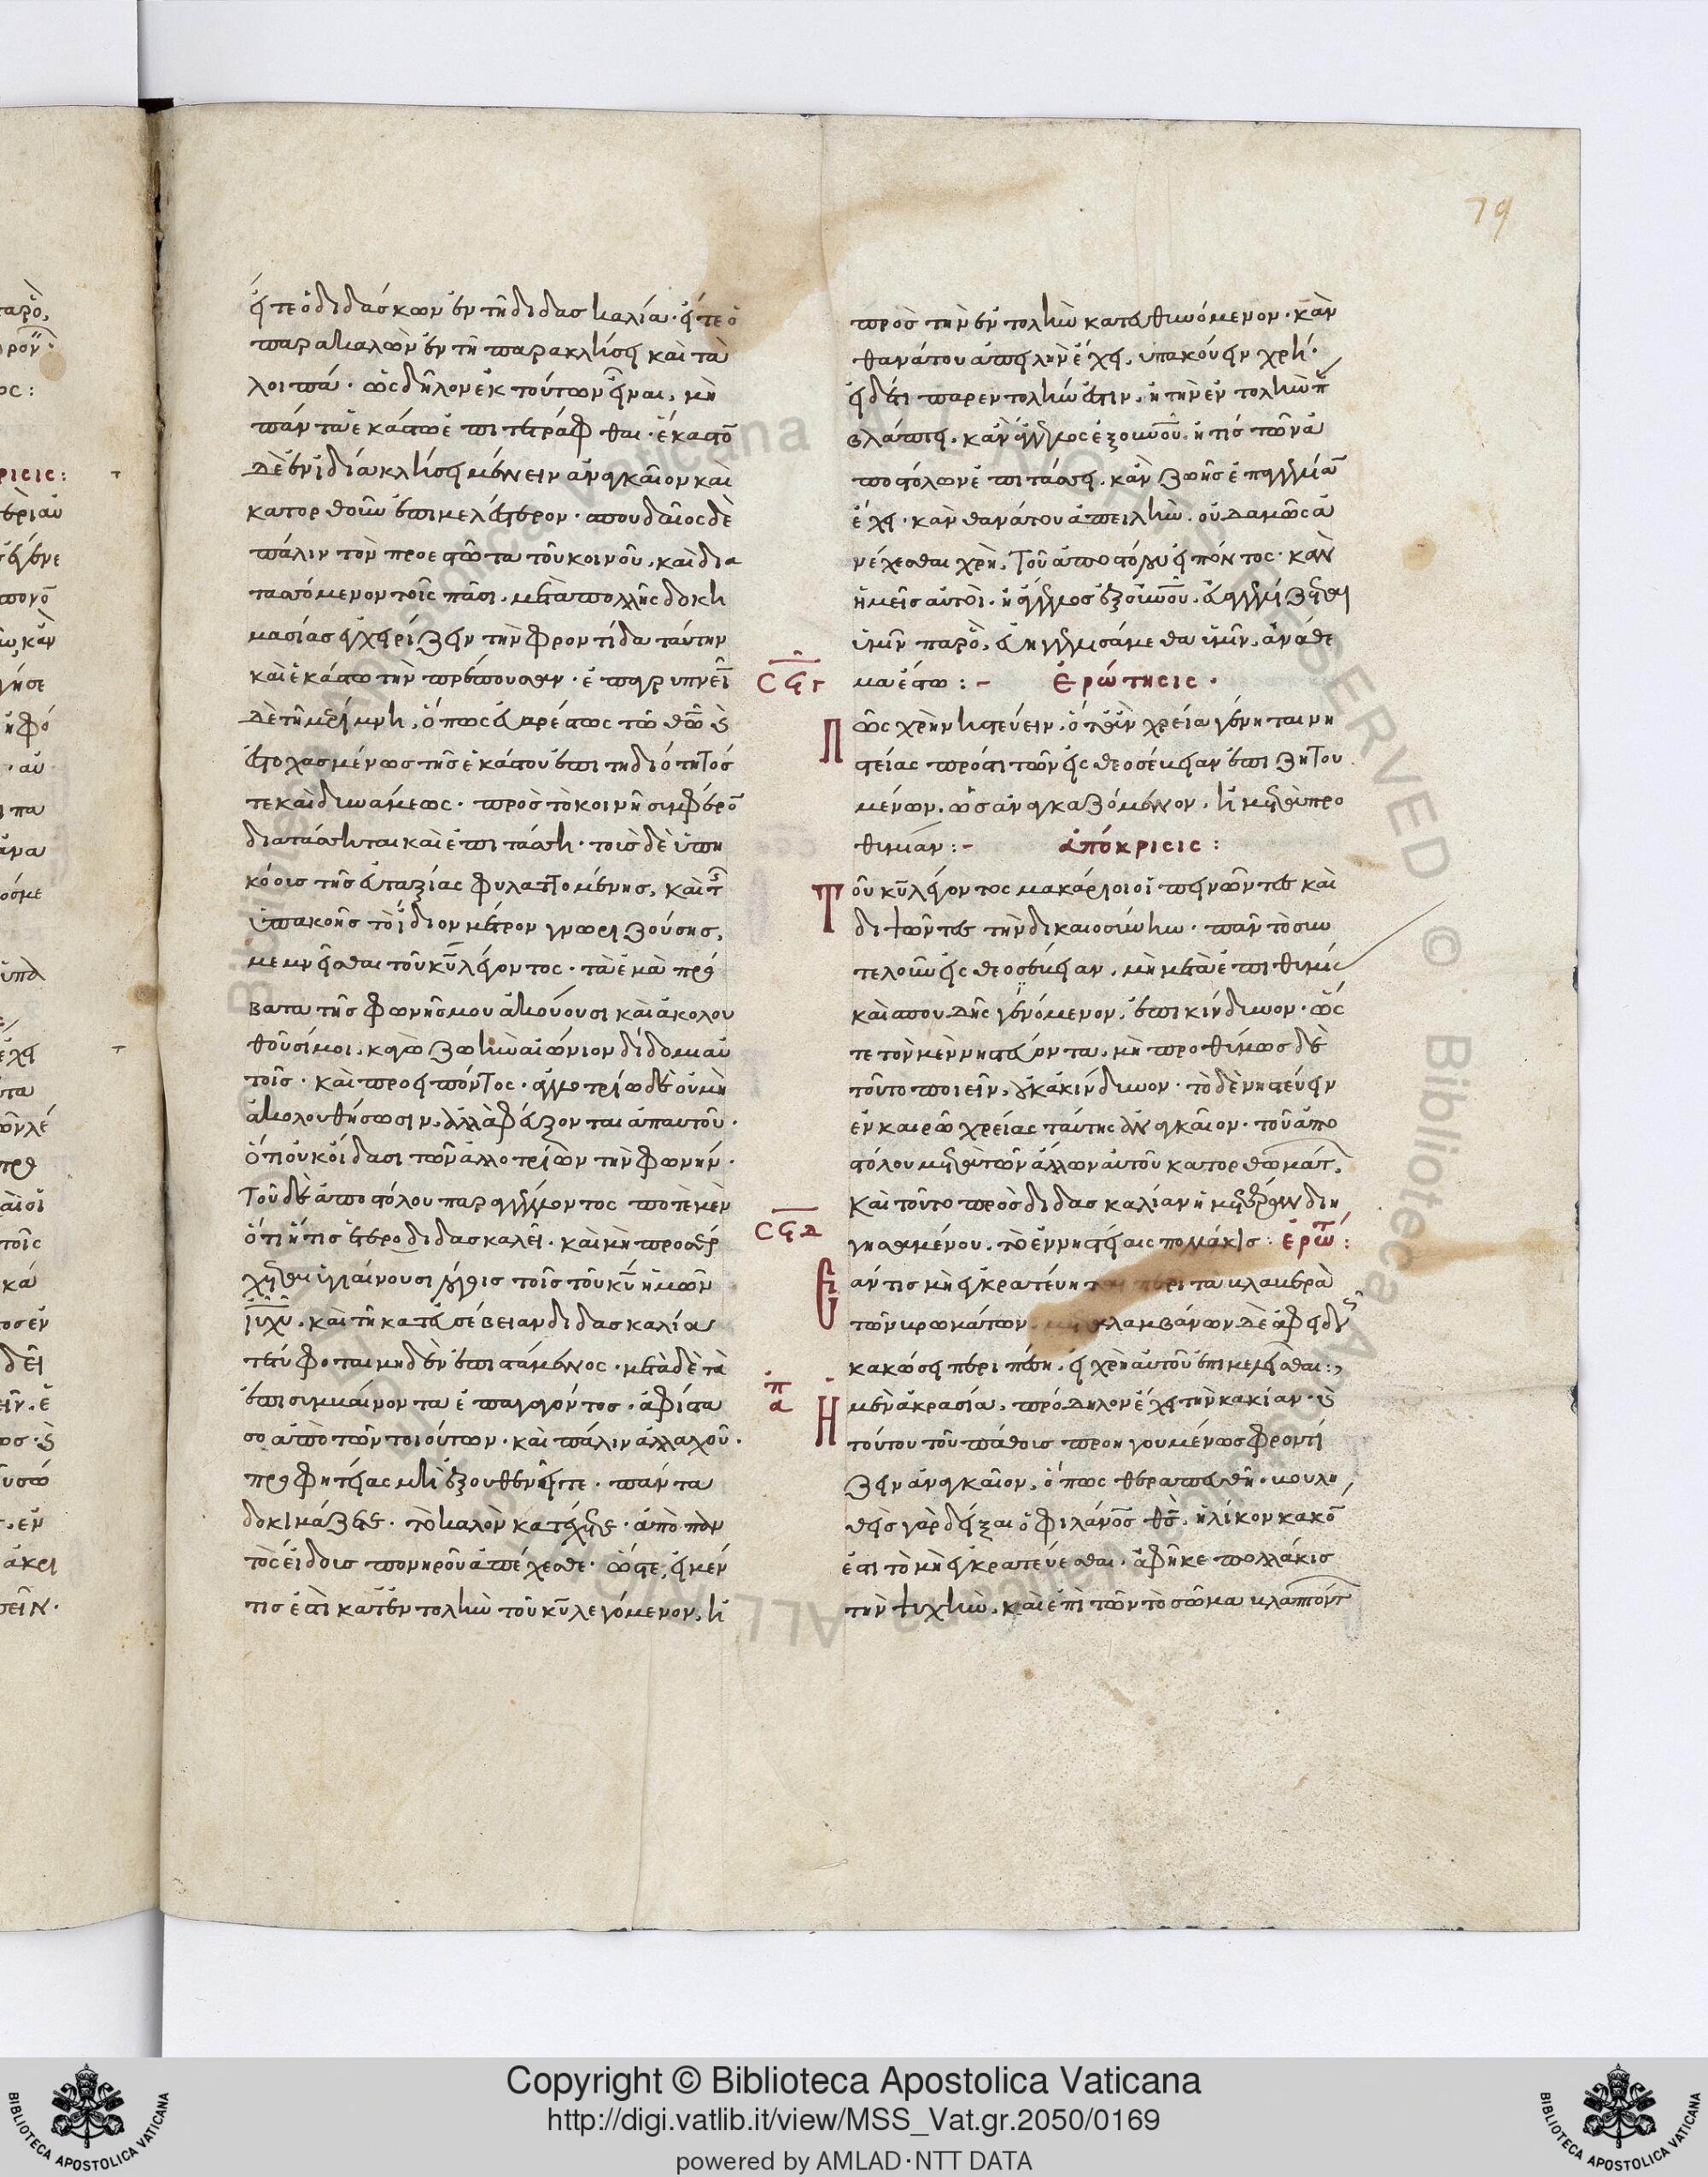 79
εἴτε ὁ διδάσκων ἐν τῇ διδασκαλία· εἴτε ὁ
παρακαλῶν ἐν τῇ παρακλήσει καὶ τὰ
λοιπά· ὡς δῆλον ἐκ τούτων εἶναι, μὴ
πάντα ἑκάστω ἐπιτετράφθαι· ἕκαστο̅
δὲ ἐν ἰδία κλήσει μένειν ἀναγκαῖον καὶ
κατορθοῦν ἐπιμελέστερον· σπουδαῖος δὲ
πάλιν τὸν προεστῶτα τοῦ κοινοῦ, καὶ δια
τασσόμενον τοῖς πᾶσι, μετὰ πολλῆς δοκι
μασίας ἐγχειρίζειν τὴν φροντίδα ταύτην
καὶ ἑκάστω τὴν πρέπουσαν· ἐπαγρυπνεῖ̅
δὲ τῇ μερίμνη, ὅπως εὐαρέστως τῶ θῶ κ
ἐστοχασμένως τῆς ἑκάστου ἐπιτηδιότητος
τε καὶ δυνάμεως· πρὸς τὸ κοινῆ συμφέρο̅
διατάσσηται καὶ ἐπιτάσση· τοῖς δὲ ὑπη
κόοις τῆς εὐταξίας φυλαττομένης, καὶ τ
ὑπακοῆς τὸ ἴδιον μέτρον γνωριζούσης,
μεμνεῖσθαι τοῦ κυ λέγοντος· τὰ ἐμὰ πρό
βατα τῆς φωνῆς μου ἀκούουσι καὶ ἀκολου
θοῦσί μοι, κἀγὼ ζωὴν αἰώνιον δίδομι αὐ
τοῖς· καὶ προειπόντος· ἀλλοτρίω δὲ οὐ μὴ
ἀκολουθήσωσιν, ἀλλὰ φεύξονται ἀπ αυτοῦ·
ὅτι οὐκ οἴδασι τῶν ἀλλοτρίων τὴν φωνήν·
Τοῦ δὲ ἀποστόλου παραγγέλλοντος ποτὲ μὲν
ὅτι ἤ τις ἑτεροδιδασκαλεῖ· καὶ μὴ προσέρ
χεται ὑγιαίνουσι λόγοις τοῖς τοῦ κυ ἡμῶν
ιυ χυ, καὶ τῇ κατ εὐσέβειαν διδασκαλία
τετύφοται μηδὲν ἐπιστάμενος· μετὰ δὲ τὰ
ἐπισυμμαίνοντα ἐπαγαγόντος· ἀφίστα
σο ἀπὸ τῶν τοιούτων· καὶ πάλιν ἀλλαχοῦ·
προφητείας μὴ ἐξουθενεῖτε· πάντα
δοκιμάζετε· τὸ καλὸν κατέχετε· ἀπὸ παν
τὸς εἴδοις πονηροῦ ἀπέχεσθε· ὥστε, εἰ μέν
τις ἐστὶ κατ ἐντολὴν τοῦ κυ λεγόμενον, ἢ
πρὸς τὴν ἐντολὴν κατευθυνόμενον· κἂν
θανάτου ἀπειλὴν ἔχει, ὑπακούειν χρή·
εἰ δέ τι παρ εντολὴν ἐστιν, ἢ τὴν ἐντολὴν π
βλάπτει, κἂν ἄγγελος ἐξ οὐνοῦ, ἤ τις τῶν ἀ
ποστόλων ἐπιτάσσει, κἂν ζωῆς ἐπαγγελία̅
ἔχει· κἂν θανάτου ἀπειλὴν, οὐδαμῶς ἀ
νέχεσθαι χρὴ, Τοῦ ἀποστόλου εἰπόντος· κἂν
ἡμεῖς αὐτοὶ· ἢ ἄγγελος ἐξ οὐνοῦ, εὐαγγελίζηται
ὑμῖν παρ ὃ, εὐηγγελισάμεθα ὑμῖν, ἀνάθε
μα ἔστω :- Ἐρώτησις·
σϟγ
Πῶς χρὴ νηστεύειν, ὅταν χρεία γένηται νη
στείας πρός τι τῶν εἰς θεοσέβειαν ἐπιζητου
μένων, ὡς ἀναγκαζόμενον, ἢ μετὰ προ
θυμίαν :- ἀπόκρισις :
Τοῦ κυ λέγοντος μακάριοι οἱ πεινῶντες καὶ
διψῶντες τὴν δικαιοσύνην· πᾶν τὸ συν
τελοῦν εἰς θεοσέβειαν, μὴ μετὰ ἐπιθυμίας
καὶ σπουδῆς γενόμενον, ἐπικίνδυνον· ὥς
τε τὸν μὲν νηστεύοντα, μὴ προθύμως δὲ
τοῦτο ποιεῖν, οὐκ ἀκίνδυνον· τὸ δὲ νηστεύειν
ἐν καιρῶ χρείας ταύτης ἀναγκαῖον· τοῦ ἀπο
στόλου μετὰ τῶν ἄλλων αὐτοῦ κατορθωμάτ
Καὶ τοῦτο πρὸς διδασκαλίαν ἡμετέραν διη
γησαμένου, τὸ ἐν νηστείαις πολλάκις : ἐρώτ :
σϟδ
Ἐὰν τις μὴ ἐγκρατεύηται περὶ τὰ κλαβερὰ
τῶν βρωμάτων, λαμβάνων δὲ ἀφειδῶς
κακώσει περιπέση, εἰ χρὴ αὐτοῦ ἐπιμελεῖσθαι :,
ἀπ
Ἡ μὲν ἀκρασία, πρόδηλον ἔχει τὴν κακίαν· κ
τούτου τοῦ πάθοις προηγουμένως φροντί
ζειν ἀναγκαῖον, ὅπως θεραπευθῆ· βουλη
θεὶς γὰρ δεῖξαι ὁ φιλάνος θς, ἡλίκον κακο̅
ἐστι τὸ μὴ ἐγκρατεύεσθαι· ἀφῆκε πολλάκις
τὴν ψυχὴν, καὶ ἐπὶ τῶν τὸ σῶμα βλαπτόντ
Copyright © Biblioteca Apostolica Vaticana
http://digi.vatlib.it/view/MSS_Vat.gr.2050/0169
powered by AMLAD·NTT DATA
BIBLIOTECA APOSTOLICA VATICANA
BIBLIOTECA APOSTOLICA VATICANA